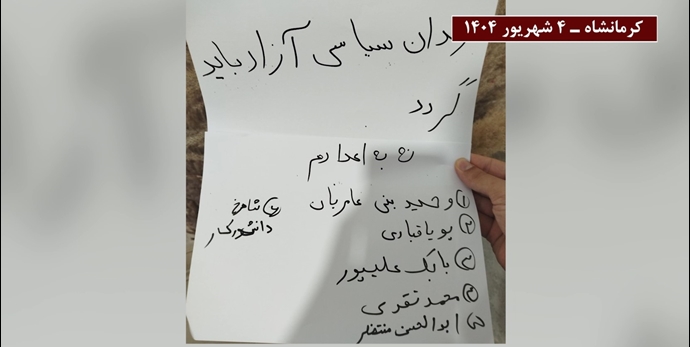 کرمانشاه ــ ۴ شهریور ۱۴۰۴
سیاسی آزاد باید
گردد
نه به اعدام
① وحید بنی عامریان
② پویا قبادی
③ بابک علیپور
④ محمد تقوی
⑤ ابوالحسن منتظر
⑥ شاهرخ
دانشورکار